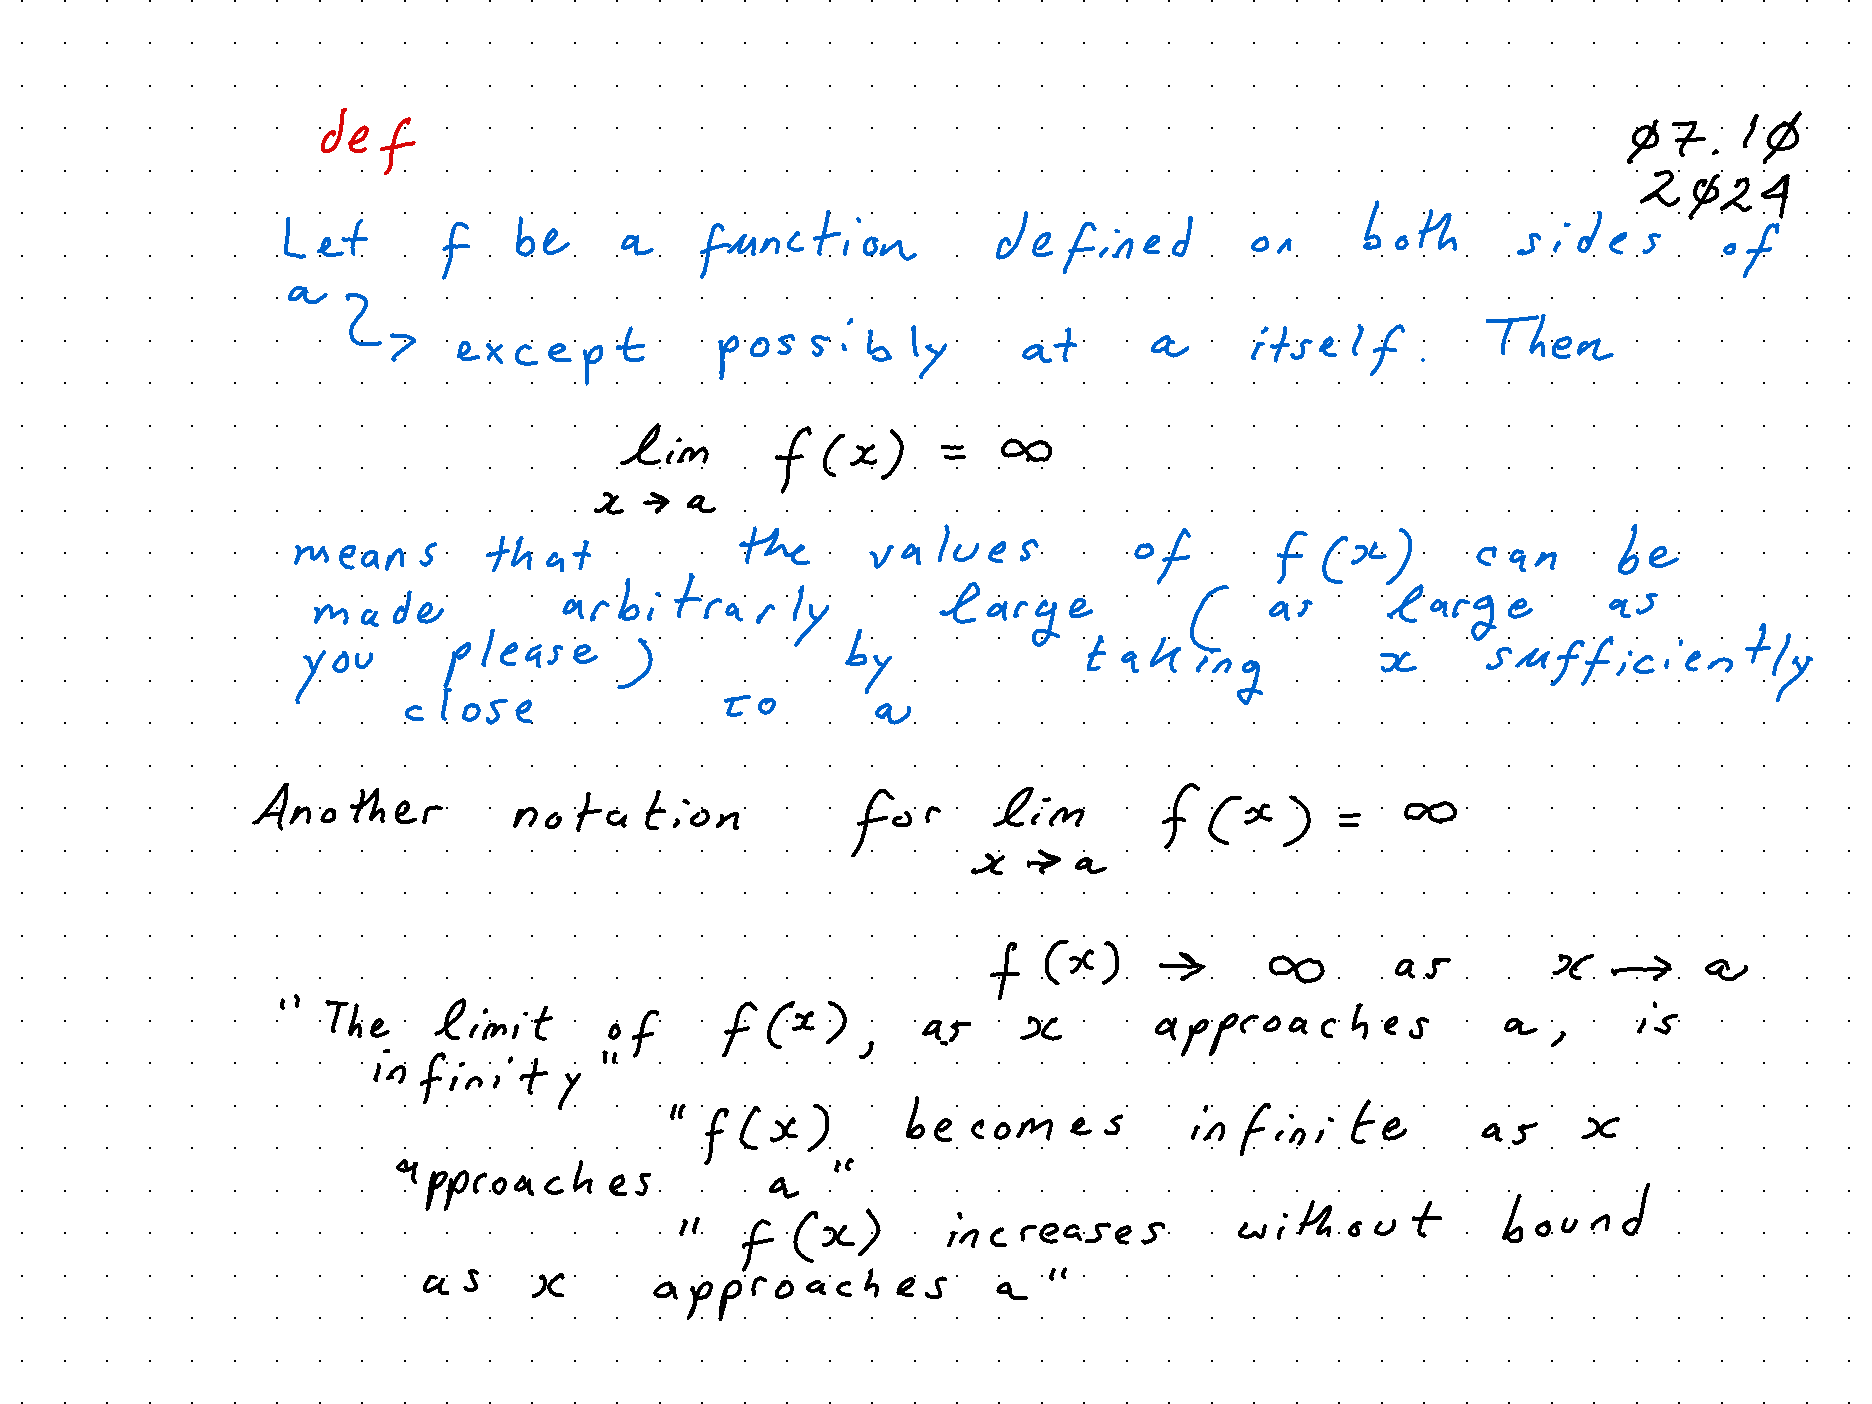 def
07.10
2024
Let f be a function defined on both sides of
a
→ except possibly at a itself. Then
lim f(x) = ∞
x → a
means that the values of f(x) can be
made arbitrarly large (as large as
you please) by taking x sufficiently
close to a
Another notation for lim f(x) = ∞
x → a
f(x) → ∞ as x → a
"The limit of f(x), as x approaches a, is
infinity"
"f(x) becomes infinite as x
approaches a"
"f(x) increases without bound
as x approaches a"